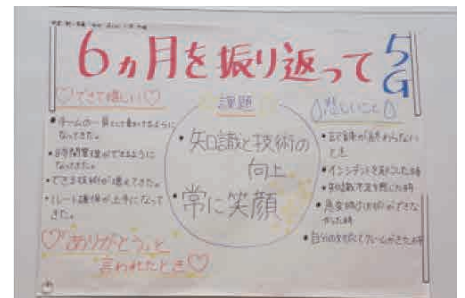 6ヵ月を振り返って
5G
♡できて嬉しい♡
・チームの一員として動けるように
なってきた。
・時間管理ができるように
なってきた。
・できる技術が増えてきた。
・ルート確保が上手になって
きた。
♡「ありがとう」と
言われたとき♡
課題
・知識と技術の
向上
・常に笑顔
悲しいこと
・記録が終わらない
とき
・インシデントを起こした時
・知識不足を感じた時
・急変時の対応ができな
かった時